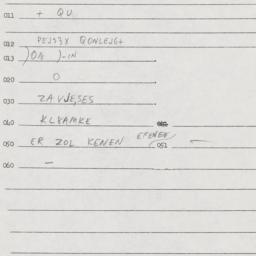 011 + QU
012 PEJSEX QONLEJGT
013 )OA )-IN
020 O
030 ZAVJESES
040 KLYAMKE
050 ER ZOL KENEN EFENEN (051 —
060 —